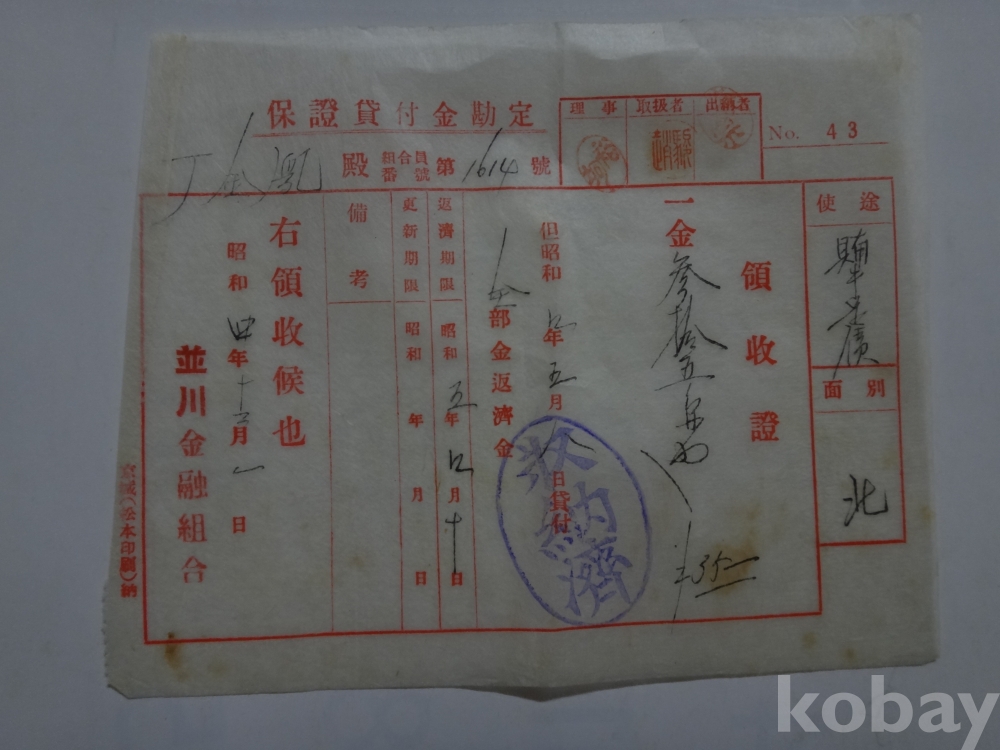 保證貸付金勘定
理事
取扱者
出納者
No. 43
丁 殿 組合員番號 第1614號
使途
面別
北
領收證
一金參拾五
但昭和 年五月八日貸付
部金返濟金
返濟期限 昭和五年 月十日
更新期限 昭和 年 月 日
備考
右領收候也
昭和四年十 月一日
並川金融組合
收納濟
松本印刷 納
kobay